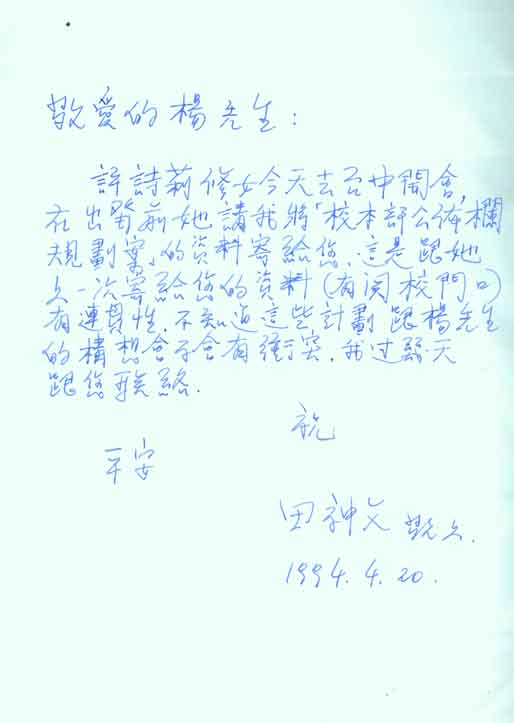 敬愛的楊先生：
許詩莉修女今天去台中開會，
在出發前她請我將「校本部公佈欄
規劃案」的資料寄給您。這是跟她
上一次寄給您的資料（有関校門口）
有連貫性。不知道這些計劃跟楊先生
的構想會不會有衝突。我过幾天
跟您联絡。
祝
平安
田神父 敬上。
1994.4.20.